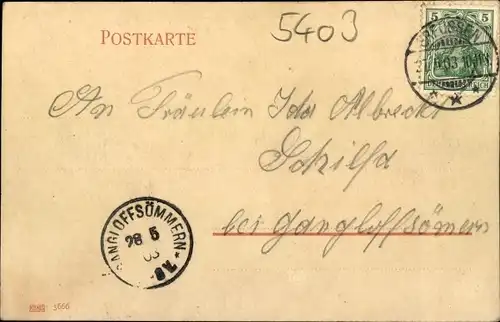 5403
POSTKARTE
5 5
GREUSSEN
An Fräulein Ida Albrecht
Schilfa
bei Gangloffsömern
GANGLOFFSÖMMERN
28 5
03
5666